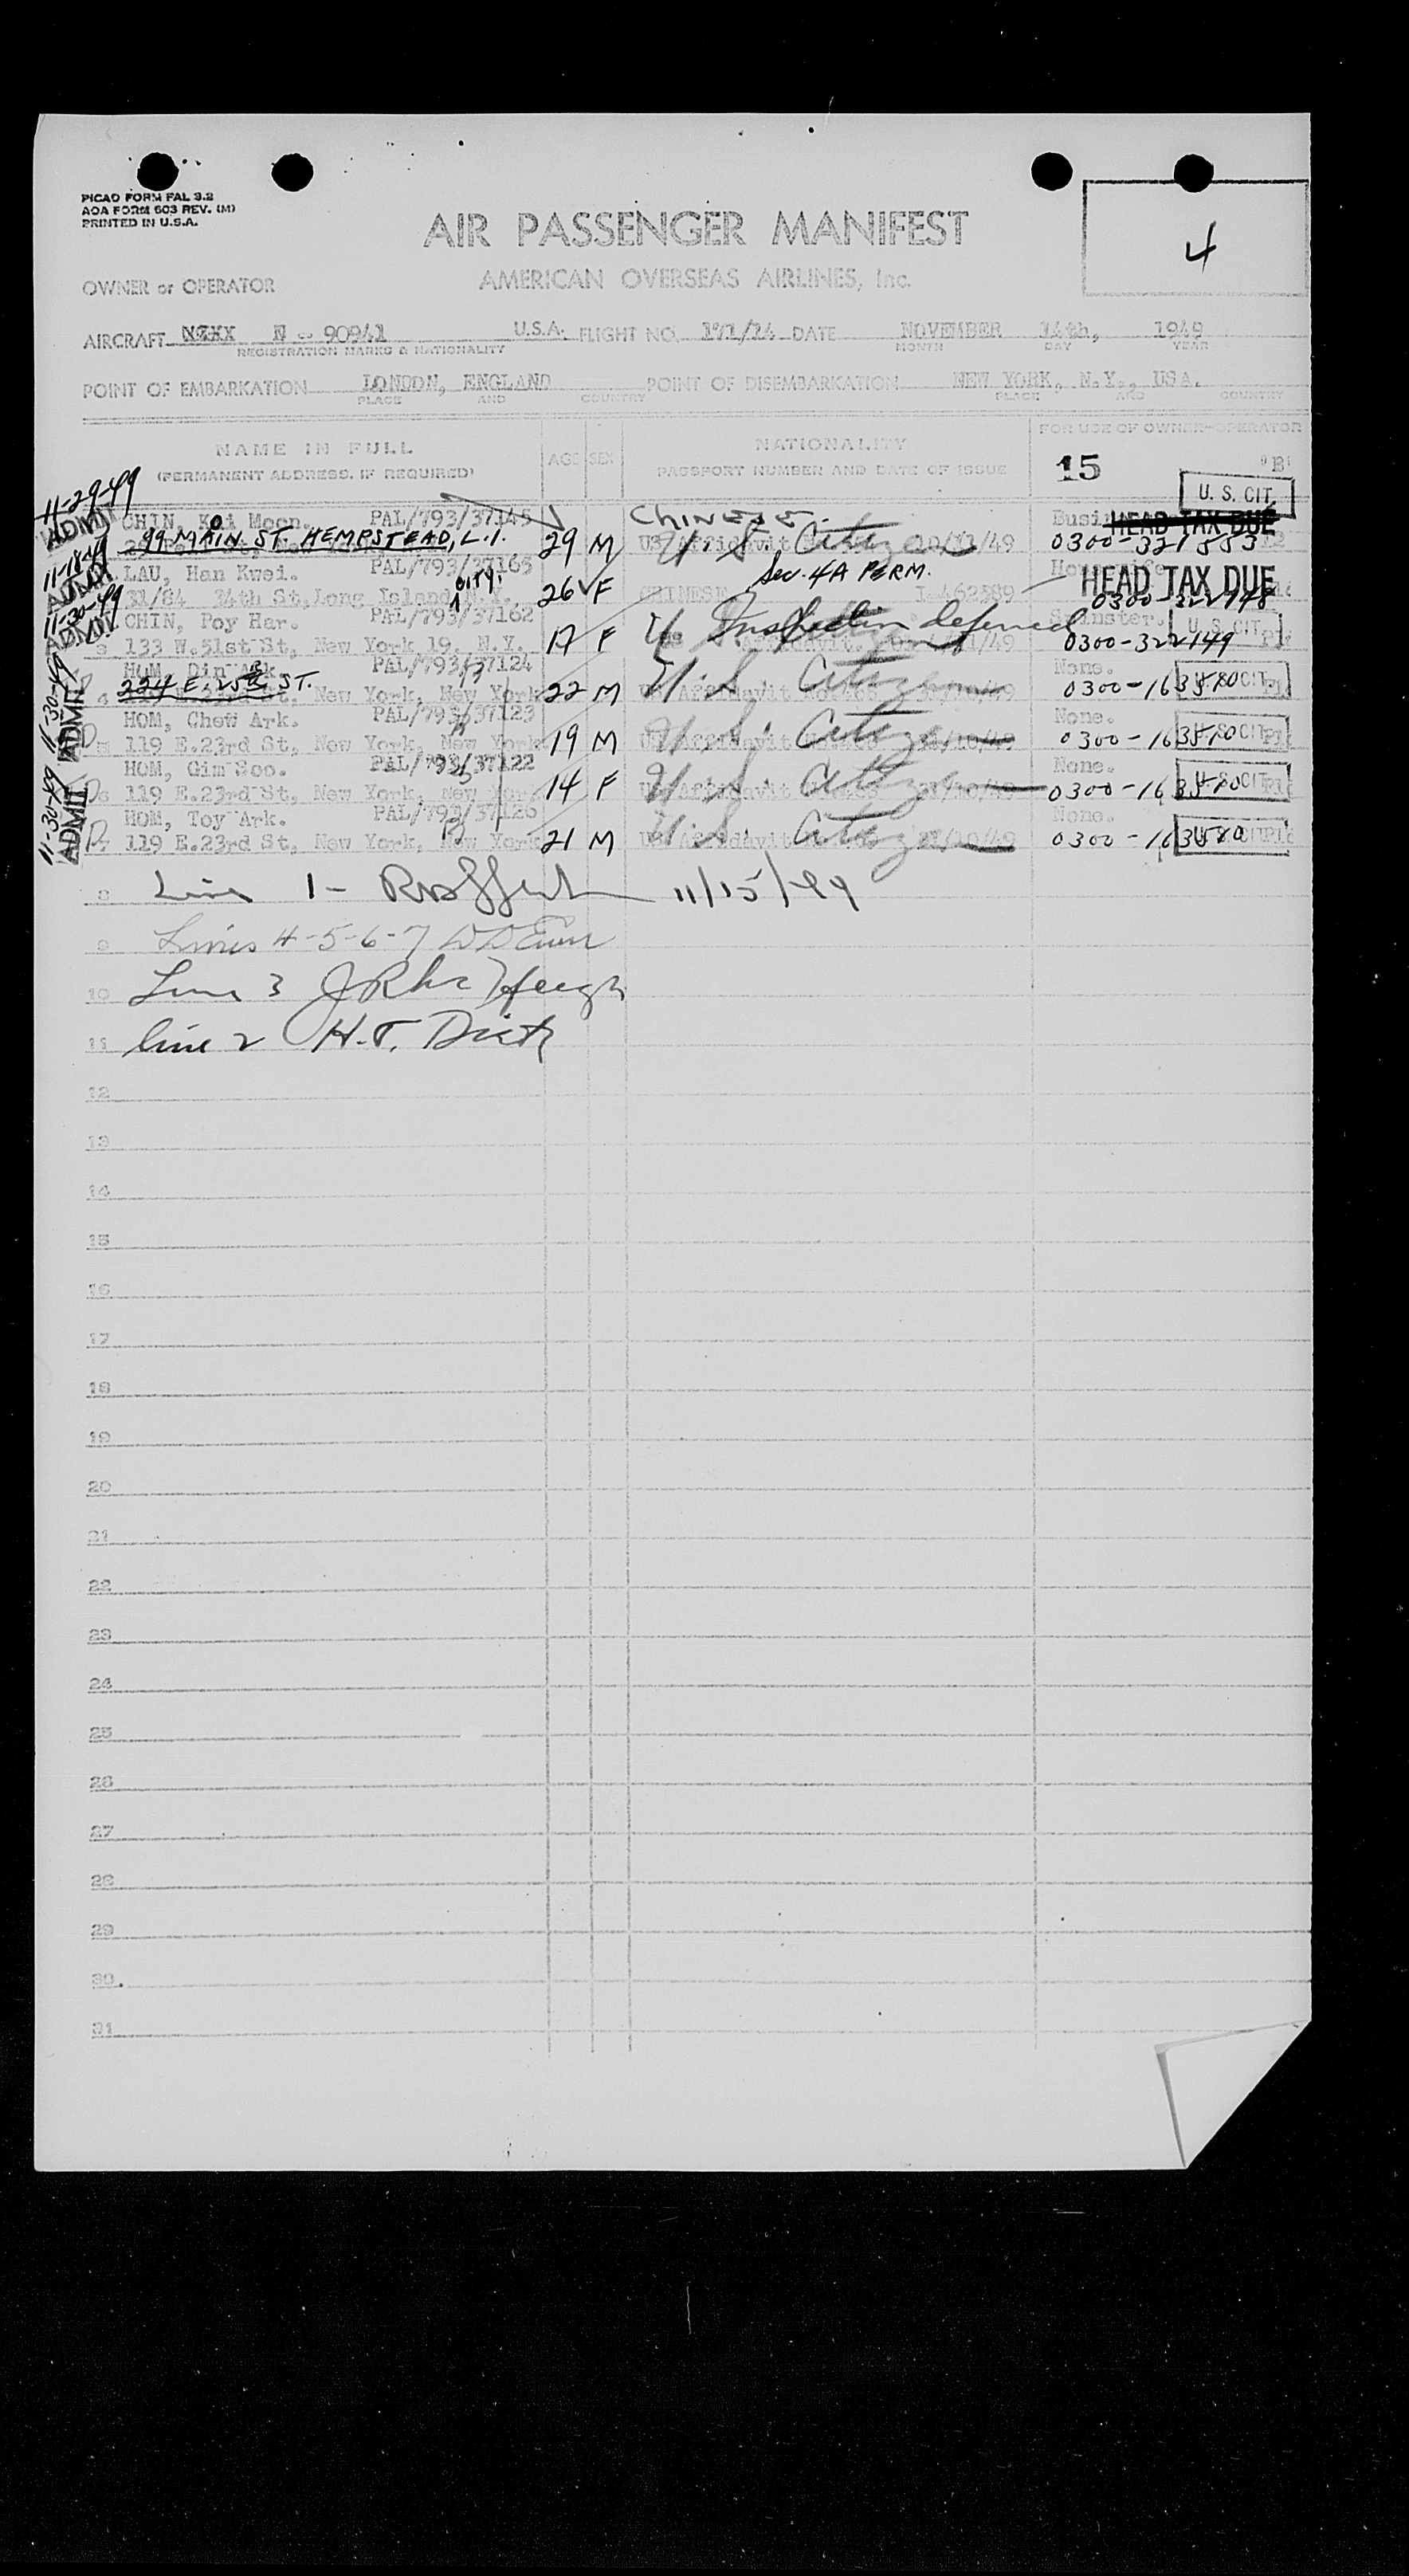 PICAO FORM FAL 3.2
AOA FORM 603 REV. (M)
PRINTED IN U.S.A.
AIR PASSENGER MANIFEST
4
OWNER or OPERATOR AMERICAN OVERSEAS AIRLINES, Inc.
AIRCRAFT N - 90941 U.S.A. FLIGHT NO. 171/14 DATE NOVEMBER 14th, 1949
REGISTRATION MARKS & NATIONALITY MONTH DAY YEAR
POINT OF EMBARKATION LONDON, ENGLAND POINT OF DISEMBARKATION NEW YORK, N.Y., USA.
PLACE AND COUNTRY PLACE AND COUNTRY
NAME IN FULL AGE SEX NATIONALITY FOR USE OF OWNER-OPERATOR
(PERMANENT ADDRESS, IF REQUIRED) PASSPORT NUMBER AND DATE OF ISSUE 15
11-29-49 U. S. CIT.
ADMIT CHIN, Kai Moon. PAL/793/37145 CHINESE. HEAD TAX DUE
99 MAIN ST. HEMPSTEAD, L.I. 29 M U. S. Citizen 0300-321883
11-18-49 ADMIT LAU, Han Kwei. PAL/793/37165 Sec. 4A PERM. HEAD TAX DUE
31/84 34th St, Long Island CITY, N.Y. 26 F CHINESE I 462589 0300-322148
11-30-49 ADMIT CHIN, Poy Har. PAL/793/37162 Inspection deferred Spinster. U. S. CIT.
3 133 W.51st St, New York 19, N.Y. 17 F 0300-322149
11-30-49 ADMIT HOM, Din Ark. PAL/793/37124 U. S. Citizen None.
4 224 E. 25th ST. New York, New York 22 M 0300-163580 U. S. CIT.
HOM, Chew Ark. PAL/793/37123 U. S. Citizen None.
5 119 E.23rd St, New York, New York 19 M 0300-163580 U. S. CIT.
HOM, Gim Soo. PAL/793/37122 U. S. Citizen None.
6 119 E.23rd St, New York, New York 14 F 0300-163580 U. S. CIT.
11-30-49 ADMIT HOM, Toy Ark. PAL/793/37126 U. S. Citizen None.
7 119 E.23rd St, New York, New York 21 M 0300-163580
8 Line 1- 11/15/49
9 Lines 4-5-6-7
10 Line 3
11 line 2 H.T.
12
13
14
15
16
17
18
19
20
21
22
23
24
25
26
27
28
29
30.
31